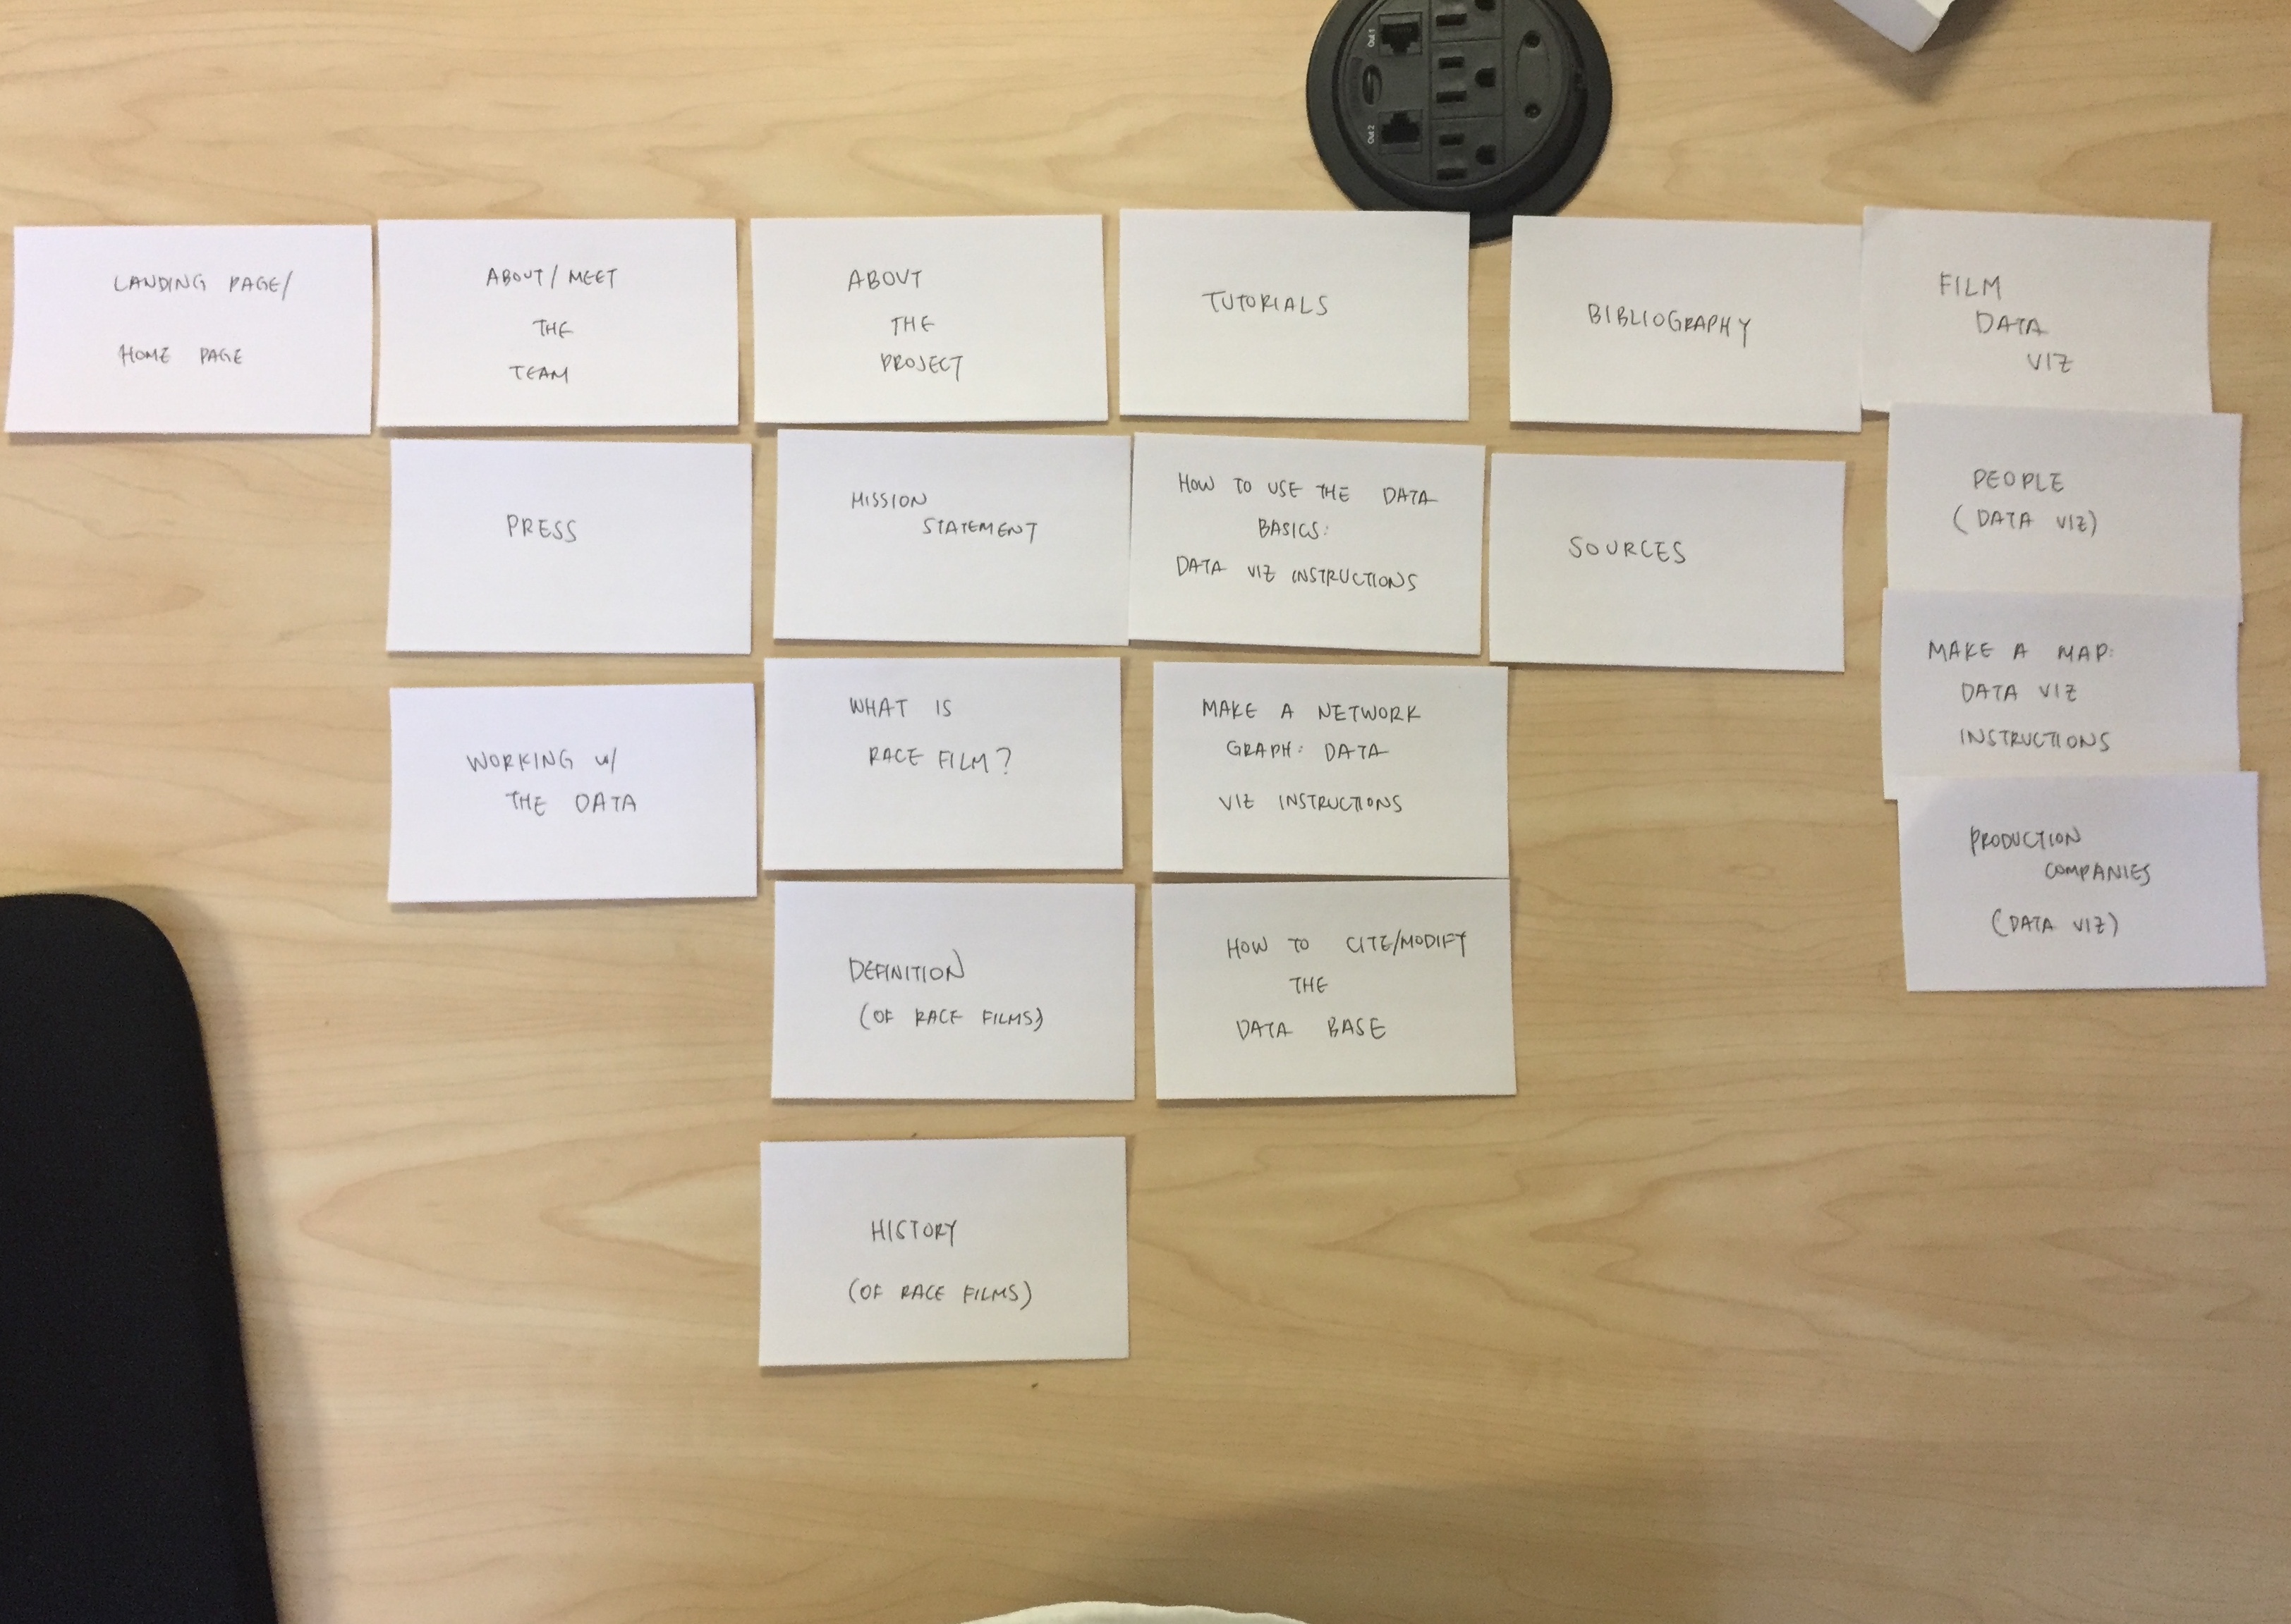 Out 1
Out 2
LANDING PAGE/
HOME PAGE
ABOUT/MEET
THE
TEAM
PRESS
WORKING w/
THE DATA
ABOUT
THE
PROJECT
MISSION
STATEMENT
WHAT IS
RACE FILM?
DEFINITION
(OF RACE FILMS)
HISTORY
(OF RACE FILMS)
TUTORIALS
HOW TO USE THE DATA
BASICS:
DATA VIZ INSTRUCTIONS
MAKE A NETWORK
GRAPH: DATA
VIZ INSTRUCTIONS
HOW TO CITE/MODIFY
THE
DATA BASE
BIBLIOGRAPHY
SOURCES
FILM
DATA
VIZ
PEOPLE
(DATA VIZ)
MAKE A MAP:
DATA VIZ
INSTRUCTIONS
PRODUCTION
COMPANIES
(DATA VIZ)